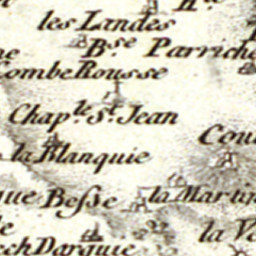 les Landes
B.se Parriche
Combe Rousse
Chap.le St. Jean
Cou
la Blanquie
que Besse
la Martin
la V
ech Darquie